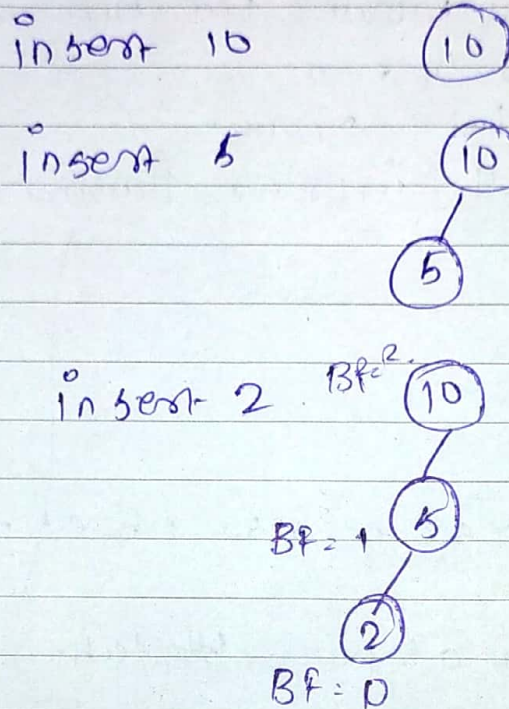 insert 10 10
insert 5 10
5
insert 2 Bf=2 10
BF=1 5
2
BF=0